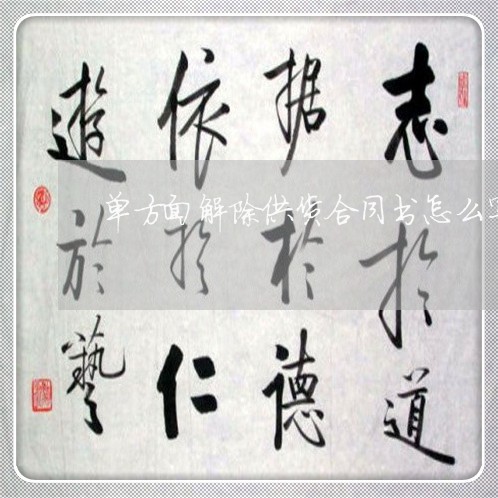 志於道
据於德
依於仁
遊於藝
单方面解除供货合同书怎么